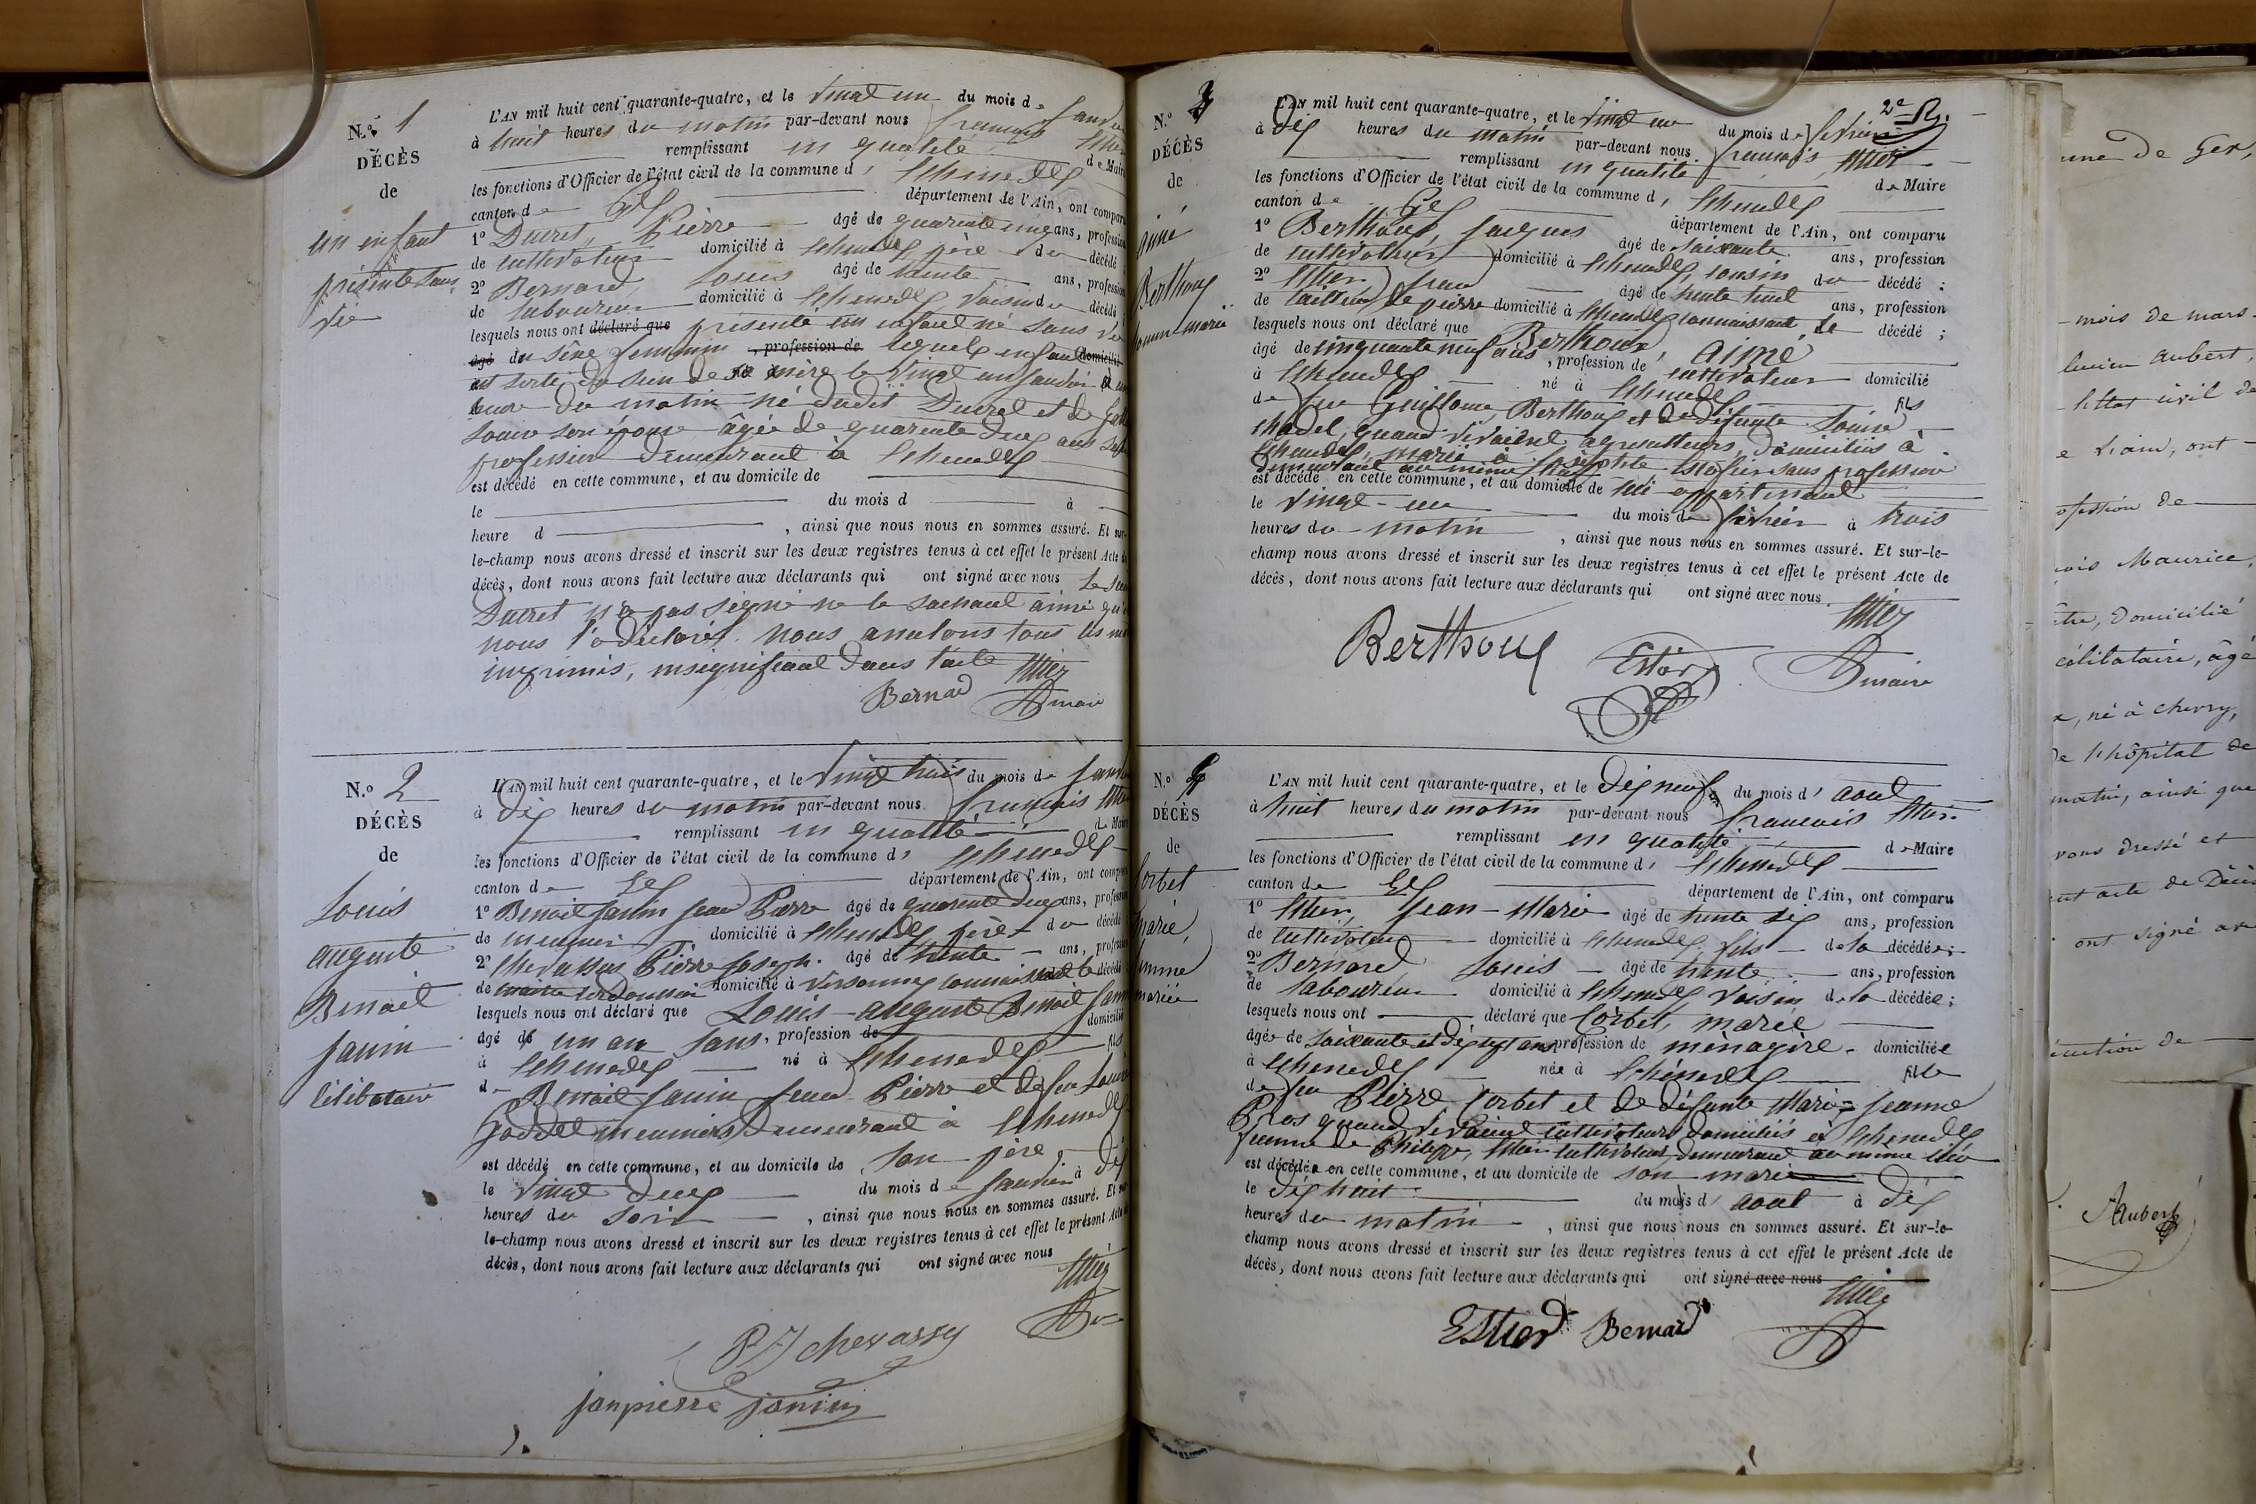 N.º 1
DÉCÈS
de
un enfant
présenté sans
vie
L'AN mil huit cent quarante-quatre, et le vingt un du mois de
à huit heures du matin par-devant nous françois
remplissant en qualité de Maire
les fonctions d'Officier de l'état civil de la commune d' Echenevex
canton de Gex département de l'Ain, ont comparu
1º Ducret, Pierre agé de quarante ans, profession
de cultivateur domicilié à Echenevex père du décédé ;
2º Bernard Louis agé de trente ans, profession
de laboureur domicilié à Echenevex voisin du décédé ;
lesquels nous ont déclaré que présenté un enfant né sans vie
agé du sexe feminin , profession de lequel enfant domicilié
est sorti du sein de sa mère le vingt un janvier
heure du matin né dudit Ducret et de
Louise son épouse âgée de quarante deux ans sans
profession demeurant à Echenevex
est décédé en cette commune, et au domicile de
le du mois d à
heure d , ainsi que nous nous en sommes assuré. Et sur-
le-champ nous avons dressé et inscrit sur les deux registres tenus à cet effet le présent Acte de
décès, dont nous avons fait lecture aux déclarants qui ont signé avec nous
Ducret n'a pas signé ne le sachant ainsi qu'il
nous l'a déclaré. Nous anulons tous les
imprimés, insignifiant dans l'acte
Bernard maire
N.º 2
DÉCÈS
de
Louis
auguste
Benoit
Janin
Célibataire
L'AN mil huit cent quarante-quatre, et le vingt trois du mois de
à dix heures du matin par-devant nous françois
remplissant en qualité de Maire
les fonctions d'Officier de l'état civil de la commune d' Echenevex
canton de Gex département de l'Ain, ont comparu
1º Benoit Janin Jean Pierre agé de quarante deux ans, profession
de meunier domicilié à Echenevex père du décédé
2º Chevassus Pierre Joseph agé de trente ans, profession
de maître cordonnier domicilié à Versonnex connaissant le décédé
lesquels nous ont déclaré que Louis-auguste Benoit Janin
agé de un an sans, profession de domicilié
à Echenevex né à Echenevex fils
de Benoit Janin Jean Pierre et de feu Louise
meuniers demeurant à Echenevex
est décédé en cette commune, et au domicile de son père
le vingt deux du mois de janvier à dix
heures du soir , ainsi que nous nous en sommes assuré. Et sur-
le-champ nous avons dressé et inscrit sur les deux registres tenus à cet effet le présent Acte
décès, dont nous avons fait lecture aux déclarants qui ont signé avec nous
P J chevassu
janpierre janin
2e R.
N.º 3
DÉCÈS
de
Aimé
Berthoux
homme marié
L'AN mil huit cent quarante-quatre, et le vingt un du mois de février
à dix heures du matin par-devant nous françois
remplissant en qualité de Maire
les fonctions d'Officier de l'état civil de la commune d' Echenevex
canton de Gex département de l'Ain, ont comparu
1º Berthoux, Jacques agé de soixante ans, profession
de cultivateur domicilié à Echenevex, cousin du décédé ;
2º jean agé de trente huit ans, profession
de tailleur de pierre domicilié à Echenevex connaissant le décédé ;
lesquels nous ont déclaré que Berthoux, Aimé
agé de cinquante neuf ans, profession de cultivateur domicilié
à Echenevex né à Echenevex fils
de feu Guillaume Berthoux et de défunte Louise
quand vivaient agriculteurs, domiciliés à
Echenevex, marié à sans profession
demeurant au même
est décédé en cette commune, et au domicile de lui appartenant
le vingt-un du mois de février à trois
heures du matin , ainsi que nous nous en sommes assuré. Et sur-le-
champ nous avons dressé et inscrit sur les deux registres tenus à cet effet le présent Acte de
décès, dont nous avons fait lecture aux déclarants qui ont signé avec nous
Berthoux maire
N.º 4
DÉCÈS
de
Corbet
marie,
femme
mariée
L'AN mil huit cent quarante-quatre, et le dix neuf du mois d' aout
à huit heures du matin par-devant nous francois
remplissant en qualité de Maire
les fonctions d'Officier de l'état civil de la commune d' Echenevex
canton de Gex département de l'Ain, ont comparu
1º Jean-Marie agé de trente six ans, profession
de cultivateur domicilié à Echenevex, fils de la décédée ;
2º Bernard Louis agé de trente ans, profession
de laboureur domicilié à Echenevex voisin de la décédée ;
lesquels nous ont déclaré que Corbet, marie
agée de soixante et dix sept ans profession de ménagère domiciliée
à Echenevex née à Echenevex fille
de feu Pierre Corbet et de défunte Marie-Jeanne
Gros quand vivaient cultivateurs domiciliés à Echenevex
femme de Philippe, cultivateur demeurant au même lieu
est décédée en cette commune, et au domicile de son mari
le dix huit du mois d' aout à dix
heures du matin , ainsi que nous nous en sommes assuré. Et sur-le-
champ nous avons dressé et inscrit sur les deux registres tenus à cet effet le présent Acte de
décès, dont nous avons fait lecture aux déclarants qui ont signé avec nous
Estier Bernard
une de Gex,
mois de mars
lucien Aubert,
l'Etat civil de
ont
profession de
Maurice,
domicilié
célibataire, âgé
né à Chevry,
de l'hôpital de
matin, ainsi que
avons dressé et
acte de Décès
ont signé
de
Aubert